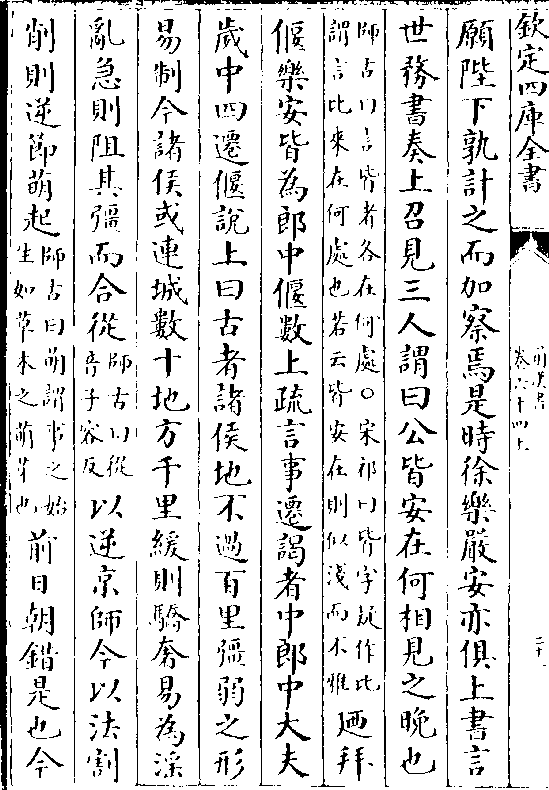 欽定四庫全書
前漢書
卷六十四上
願陛下孰計之而加察焉是時徐樂嚴安亦俱上書言
世務書奏上召見三人謂曰公皆安在何相見之晚也
師古曰言皆者各在何處〇宋祁曰皆字疑作比
謂言比來在何處也若云皆安在則似淺而不雅
廼拜
偃樂安皆為郎中偃數上疏言事遷謁者中郎中大夫
歲中四遷偃說上曰古者諸侯地不過百里彊弱之形
易制今諸侯或連城數十地方千里緩則驕奢易為淫
亂急則阻其彊而合從
師古曰從
音子容反
以逆京師今以法割
削則逆節萌起
師古曰萌謂事之始
生如草木之萌芽也
前日朝錯是也今